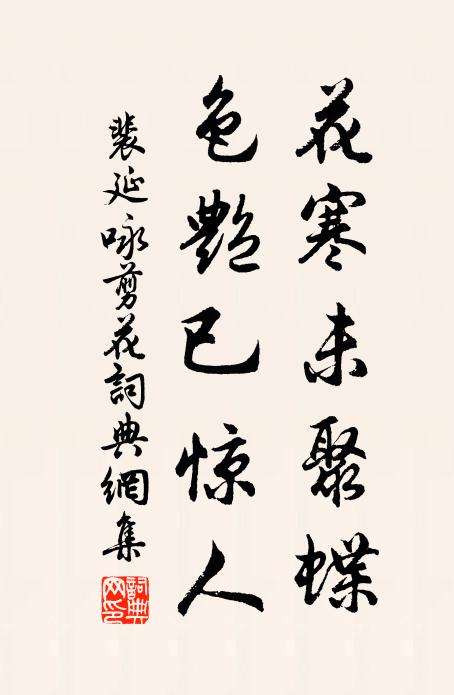 花寒未聚蝶
色艷已惊人
裴延咏剪花詞典網集
詞典网印